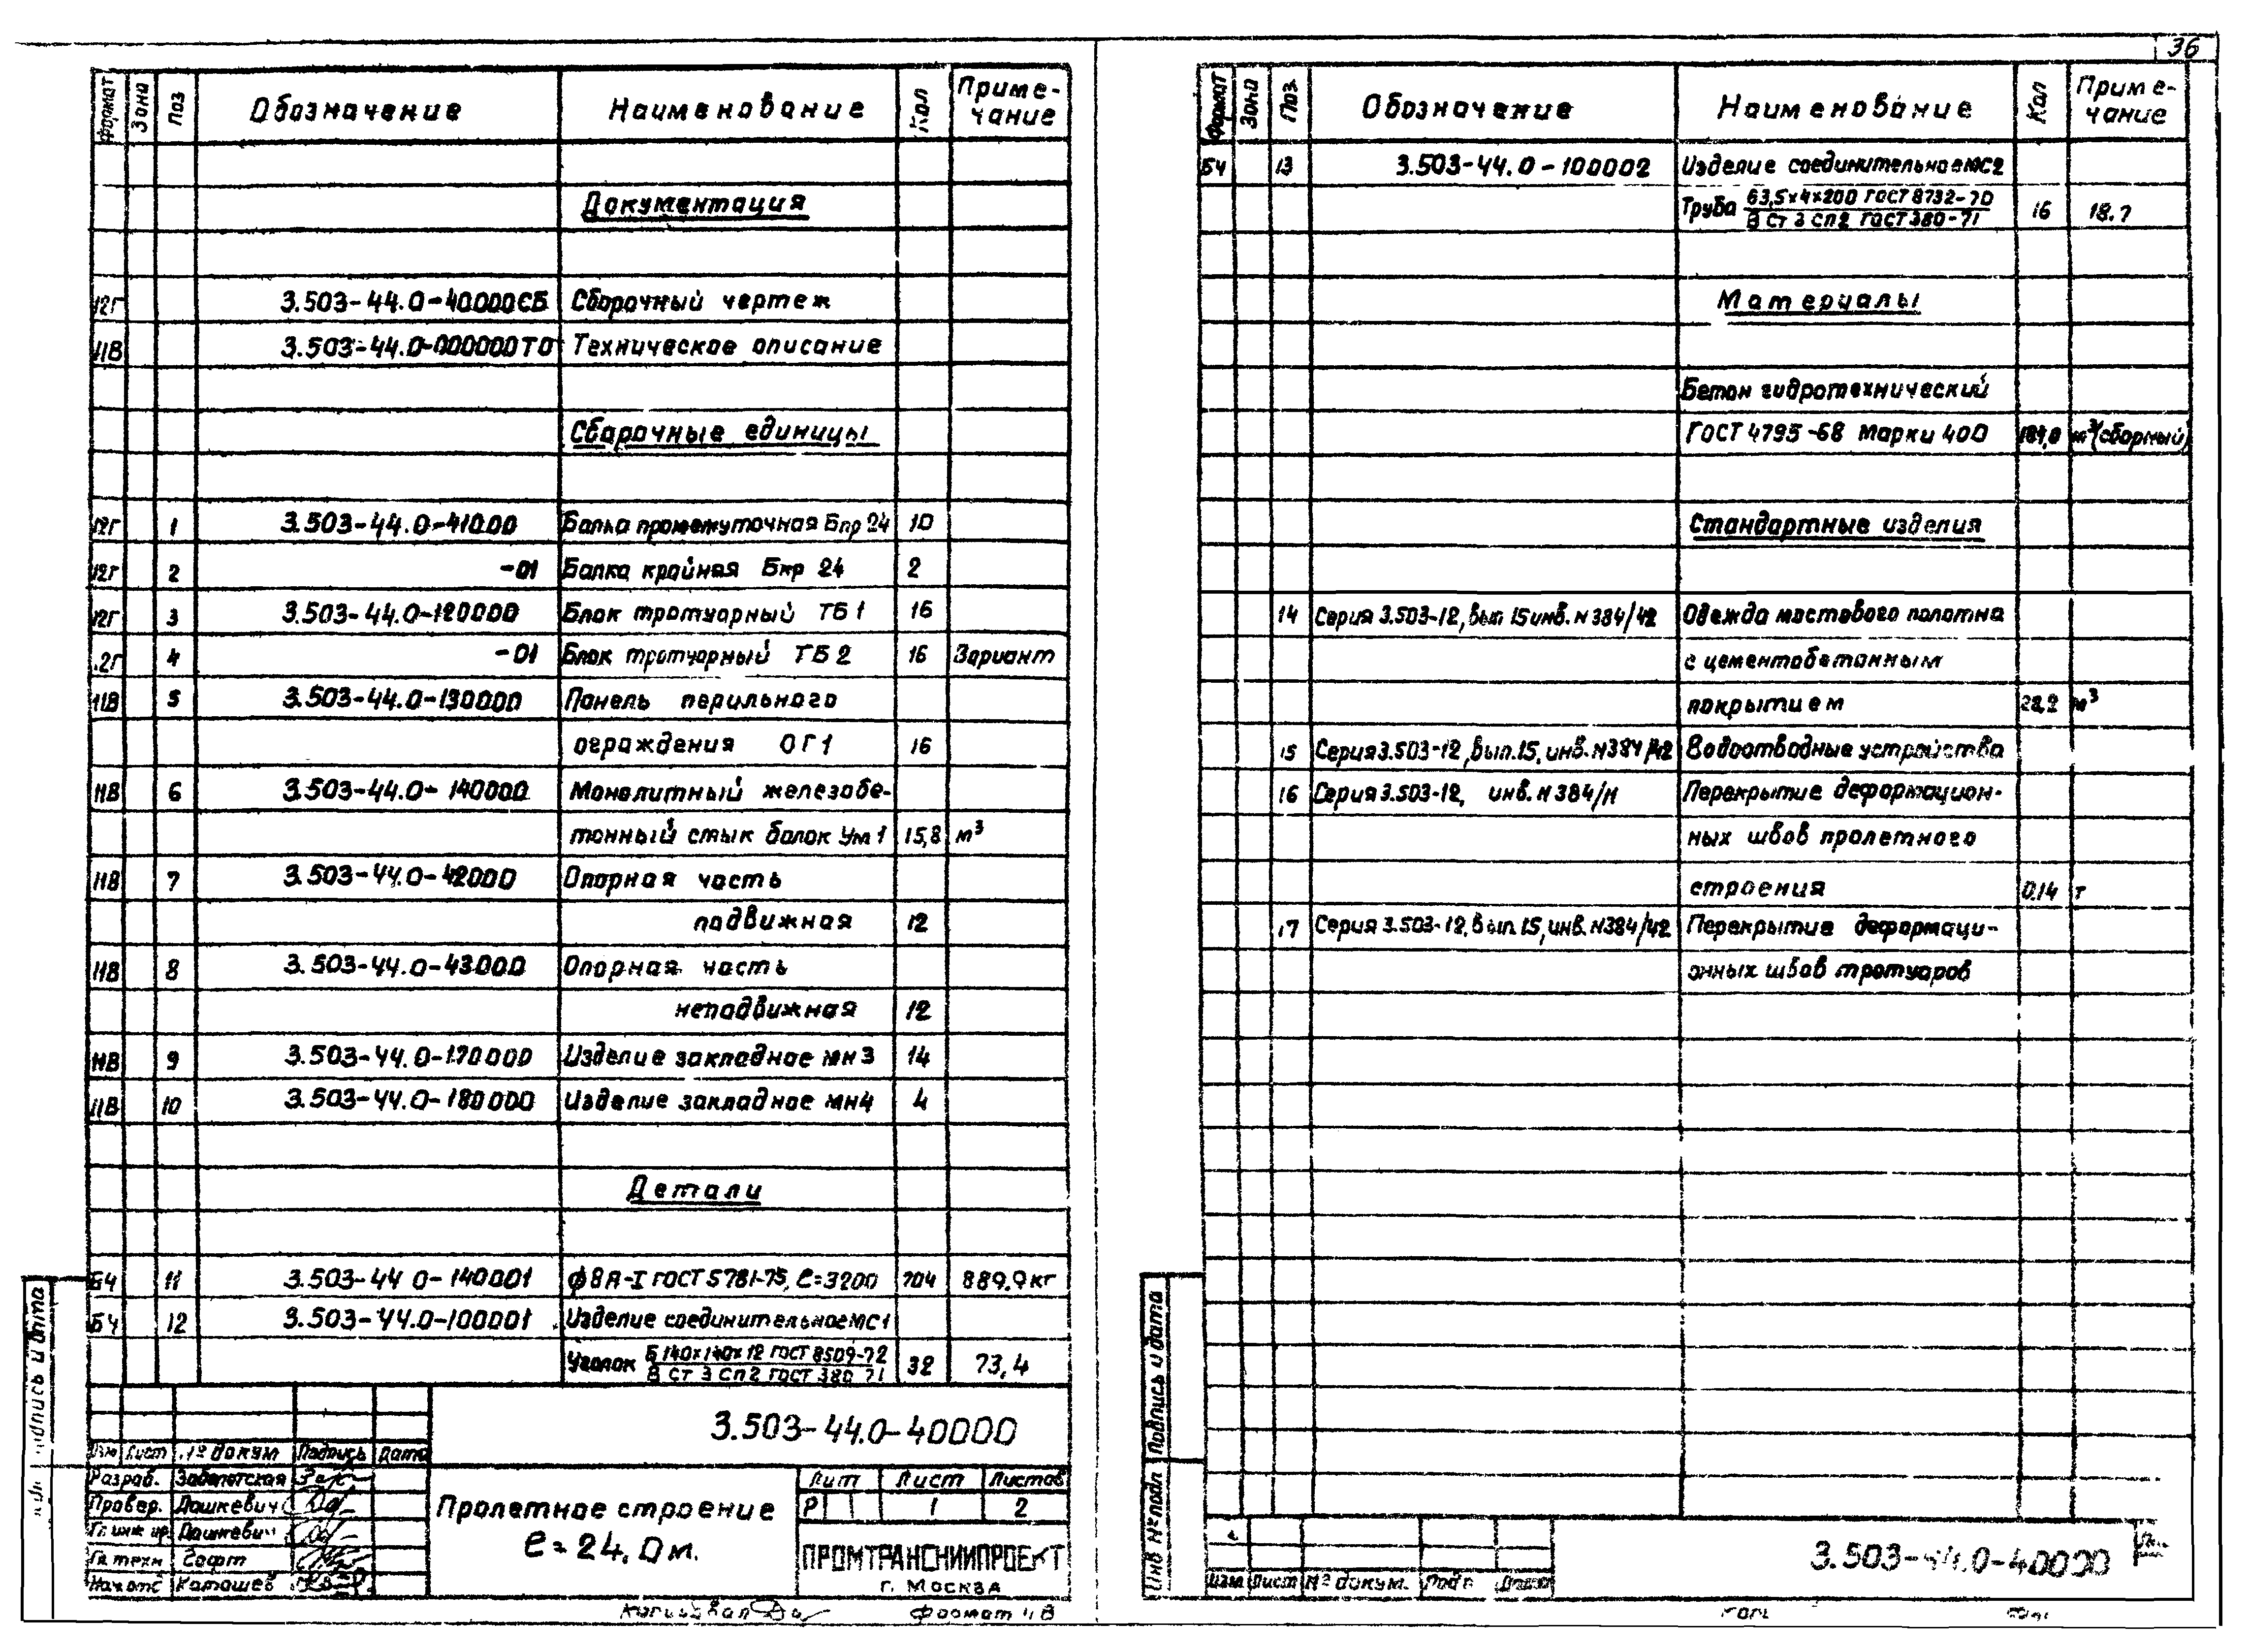 36
Формат Зона Поз Обозначение Наименование Кол Приме-
чание
Документация
12Г 3.503-44.0-40000СБ Сборочный чертеж
11В 3.503-44.0-000000ТО Техническое описание
Сборочные единицы
12Г 1 3.503-44.0-41000 Балка промежуточная Бпр 24 10
12Г 2 -01 Балка крайняя Бкр 24 2
12Г 3 3.503-44.0-120000 Блок тротуарный ТБ1 16
.2Г 4 -01 Блок тротуарный ТБ2 16 Вариант
11В 5 3.503-44.0-130000 Панель перильного
ограждения ОГ1 16
11В 6 3.503-44.0-140000 Монолитный железобе-
тонный стык балок Ум1 15,8 м³
11В 7 3.503-44.0-42000 Опорная часть
подвижная 12
11В 8 3.503-44.0-43000 Опорная часть
неподвижная 12
11В 9 3.503-44.0-170000 Изделие закладное МН3 14
11В 10 3.503-44.0-180000 Изделие закладное МН4 4
Детали
БЧ 11 3.503-44 0-140001 ϕ8А-I ГОСТ 5781-75, ℓ=3200 704 889.9кг
БЧ 12 3.503-44.0-100001 Изделие соединительное МС1
Уголок Б 140х140х12 ГОСТ 8509-72 32 73,4
В Ст 3 Сп2 ГОСТ 380 71
3.503-44.0-40000
Изм Лист № докум Подпись Дата
Разраб. Заболотская
Провер. Дашкевич
Гл инж пр. Дашкевич
Гл техн Софт
Нач отд Каташев
Пролетное строение
ℓ=24,0м.
Лит Лист Листов
Р 1 2
ПРОМТРАНСНИИПРОЕКТ
г. Москва
Копировал Формат 11В
Подпись и дата
Формат Зона Поз. Обозначение Наименование Кол Приме-
чание
БЧ 13 3.503-44.0-100002 Изделие соединительное МС2
Труба 63,5х4х200 ГОСТ 8732-70 16 18.7
В Ст 3 сп2 ГОСТ 380-71
Материалы
Бетон гидротехнический
ГОСТ 4795-68 Марки 400 м³(сборный)
Стандартные изделия
14 Серия 3.503-12, вып 15 инв. N 384/42 Одежда мостового полотна
с цементобетонным
покрытием 28,2 м³
15 Серия 3.503-12, вып.15, инв. N384/42 Водоотводные устройства
16 Серия 3.503-12, инв. N 384/11 Перекрытие деформацион-
ных швов пролетного
строения 0.14 т
17 Серия 3.503-12, вып.15, инв. N384/42 Перекрытие деформаци-
онных швов тротуаров
Инв № подл Подпись и дата
Изм Лист № докум. Подп Дата
3.503-44.0-40000